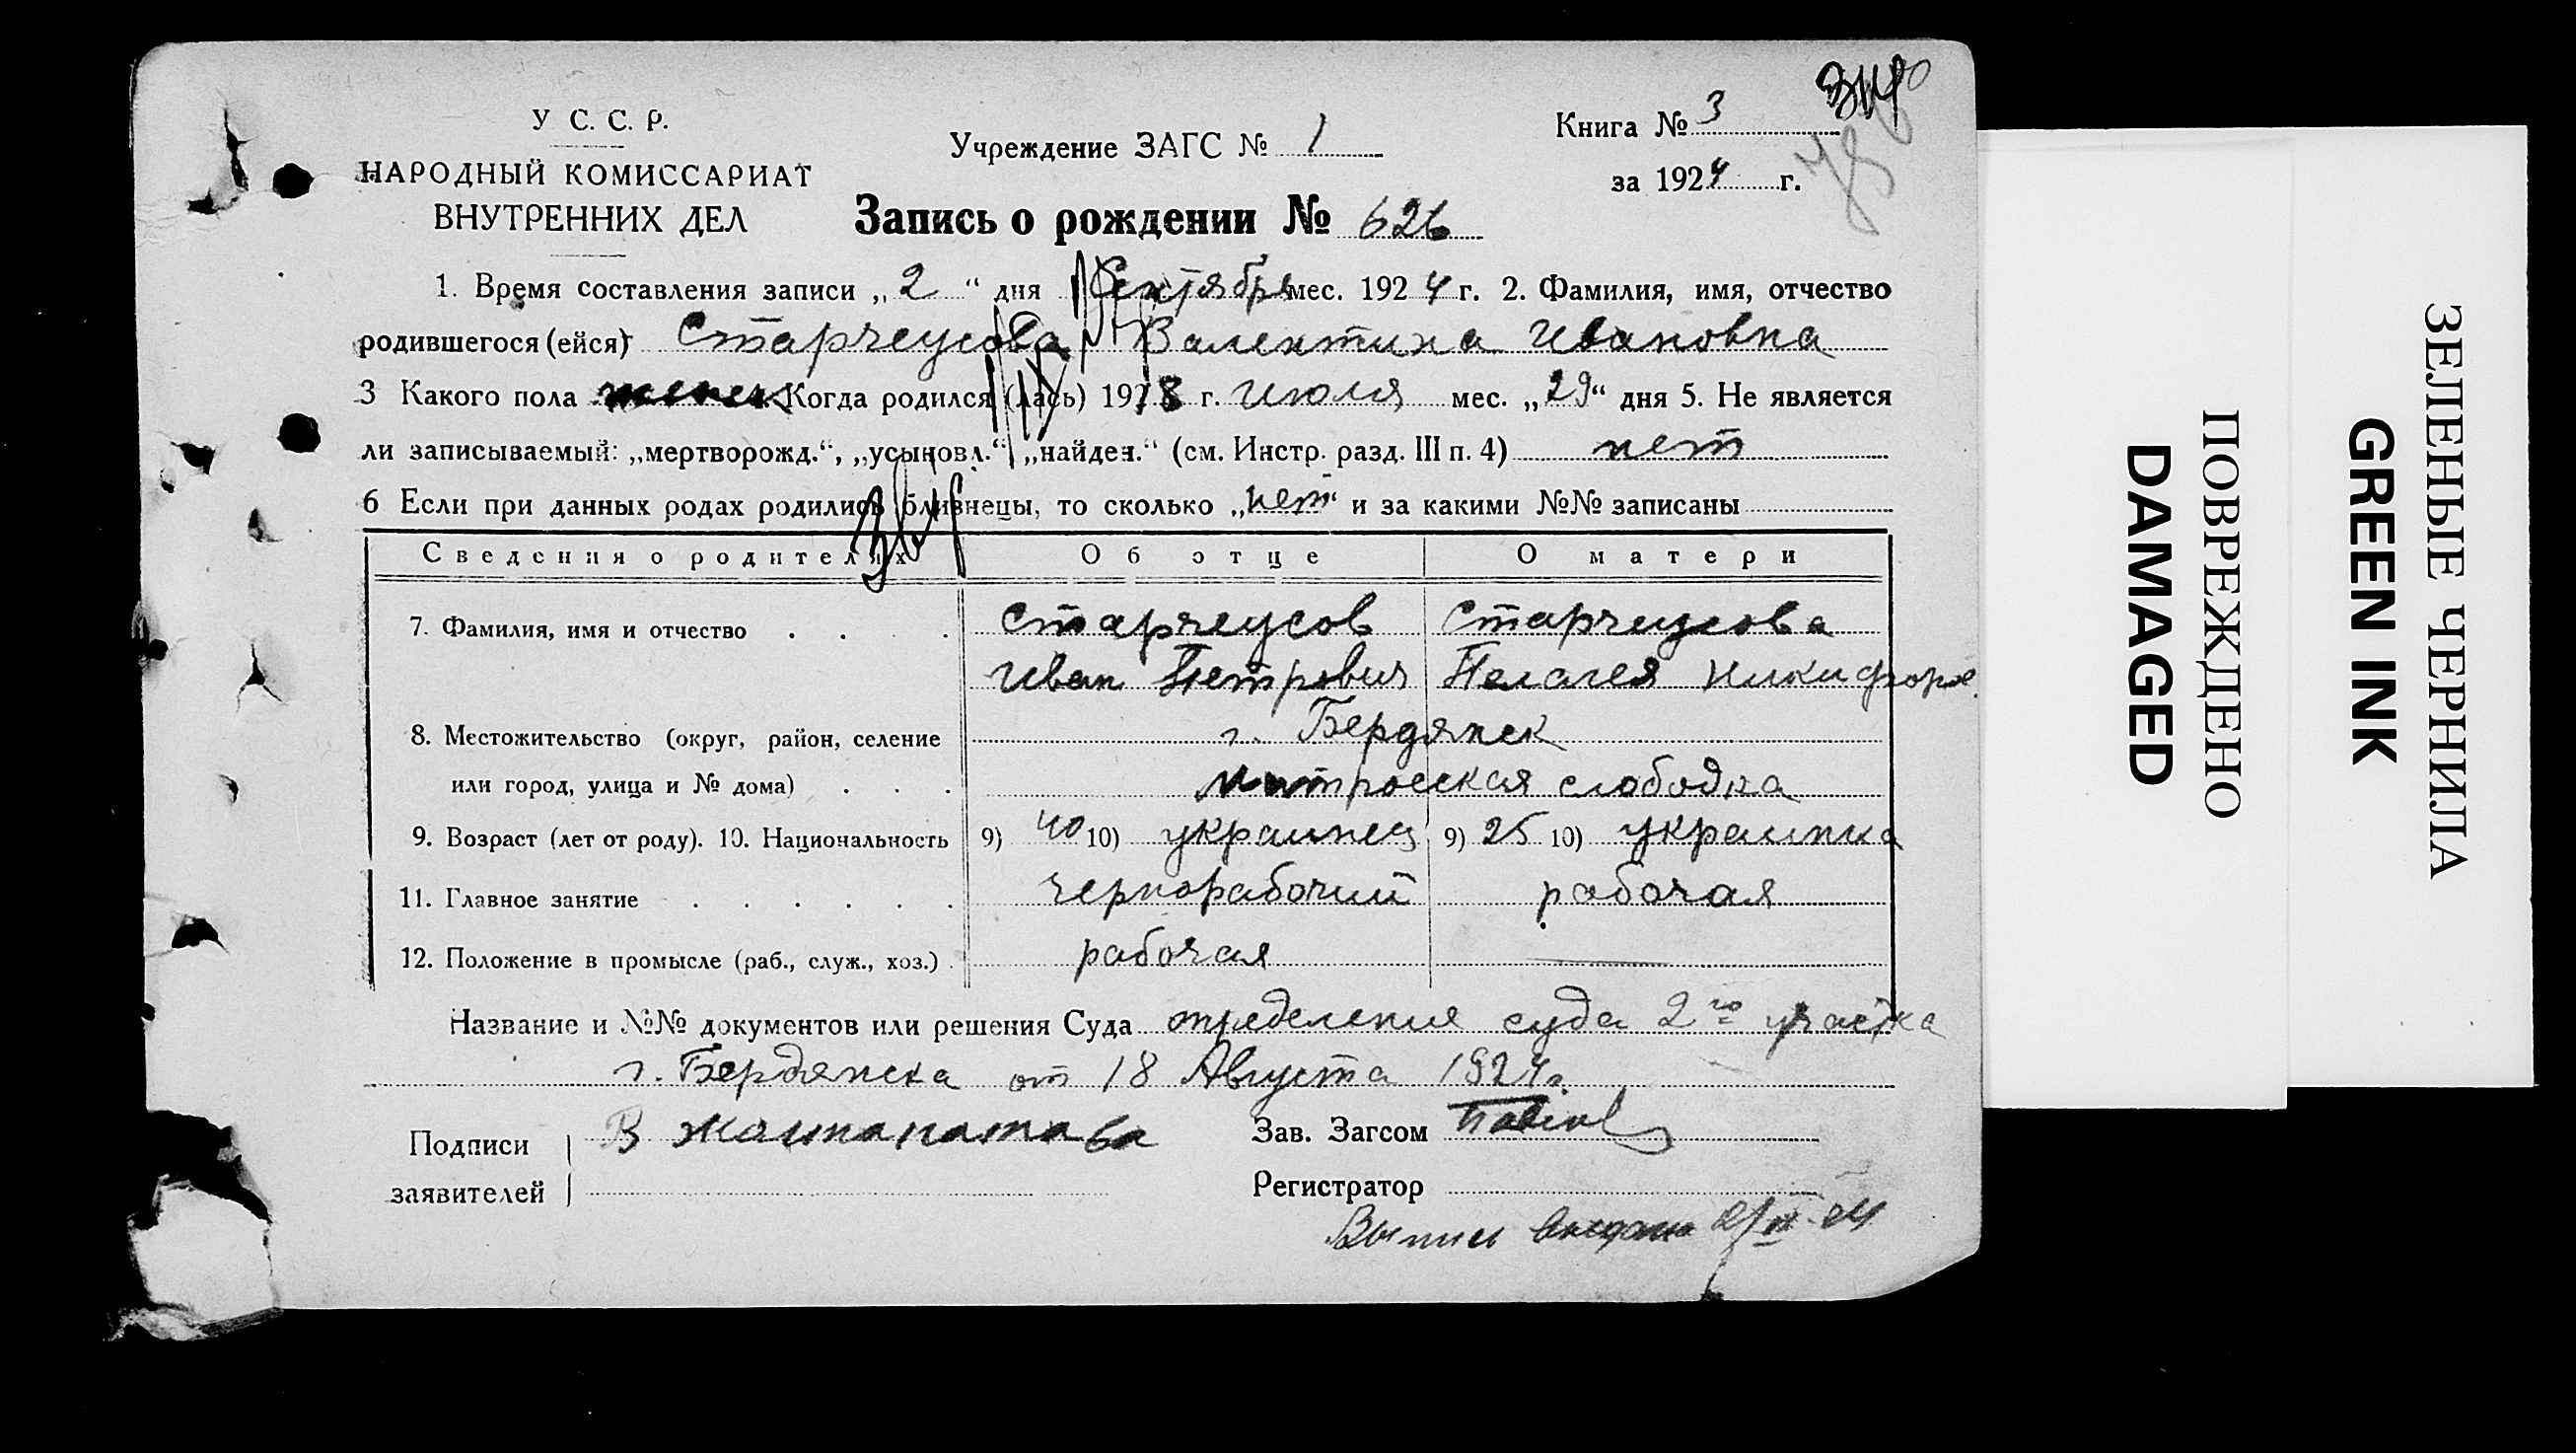 У С. С. Р.
НАРОДНЫЙ КОМИССАРИАТ
ВНУТРЕННИХ ДЕЛ
Учреждение ЗАГС № 1
Книга № 3
за 1924 г.
Запись о рождении № 626
1. Время составления записи „2“ дня Сентября мес. 1924 г. 2. Фамилия, имя, отчество
родившегося (ейся) Старчеусова Валентина Ивановна
3 Какого пола женск Когда родился (лась) 1918 г. Июля мес. „29“ дня 5. Не является
ли записываемый: „мертворожд.“, „усыновл.“ „найден.“ (см. Инстр. разд. III п. 4) нет
6 Если при данных родах родились близнецы, то сколько „нет“ и за какими №№ записаны
Сведения о родителях Об отце О матери
7. Фамилия, имя и отчество Старчеусов Старчеусова
Иван Петрович Пелагея Никифоров.
8. Местожительство (округ, район, селение г. Бердянск
или город, улица и № дома) Матросская слободка
9. Возраст (лет от роду). 10. Национальность 9) 40 10) украинец 9) 25 10) украинка
11. Главное занятие чернорабочий рабочая
12. Положение в промысле (раб., служ., хоз.) рабочая
Название и №№ документов или решения Суда определения суда 2го участка
г. Бердянска от 18 Августа 1924 г.
Подписи
заявителей
Зав. Загсом
Регистратор
Выпись выдана
ЗЕЛЕНЫЕ ЧЕРНИЛА
GREEN INK
ПОВРЕЖДЕНО
DAMAGED